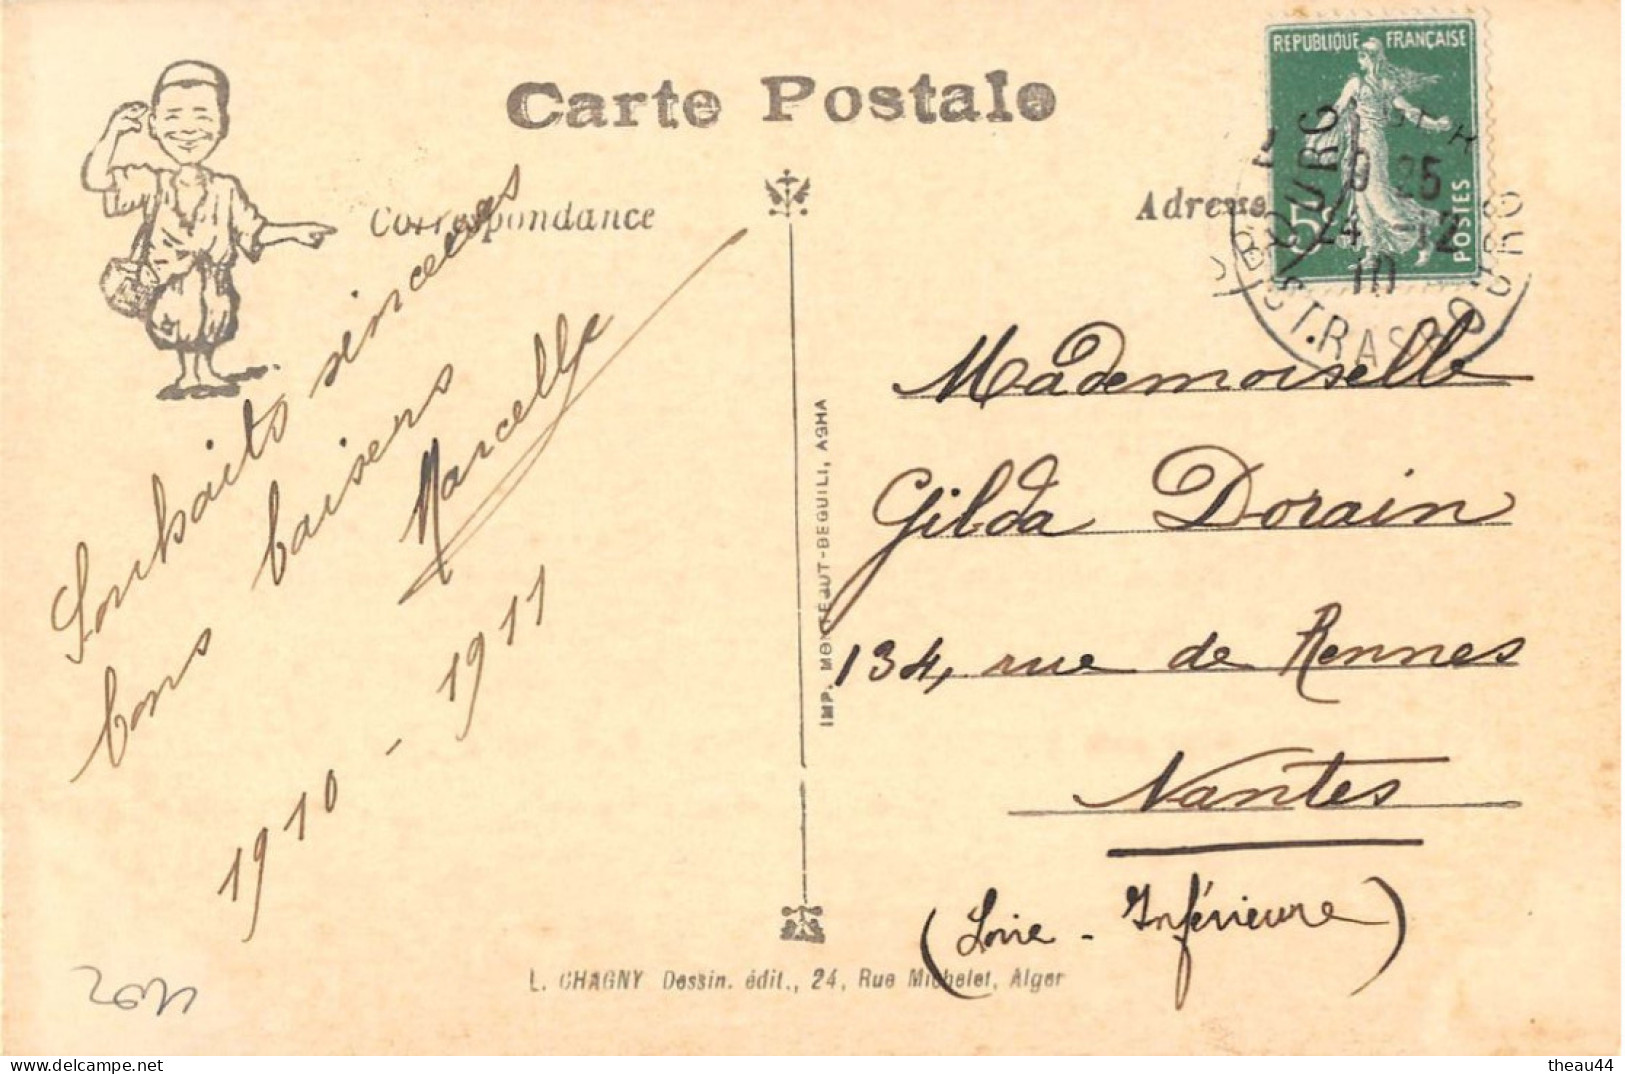 Carte Postale
Correspondance
Souhaits sincères
bons baisers
Marcelle
1910 - 1911
IMP. MONTEGUT-BEGUILI, AGHA
Adresse
REPUBLIQUE FRANÇAISE
5c
POSTES
9 25
24 -12
10
STRASBOURG
Mademoiselle
Gilda Dorain
134, rue de Rennes
Nantes
(Loire - Inférieure)
L. CHAGNY Dessin. édit., 24, Rue Michelet, Alger
delcampe.net
theau44